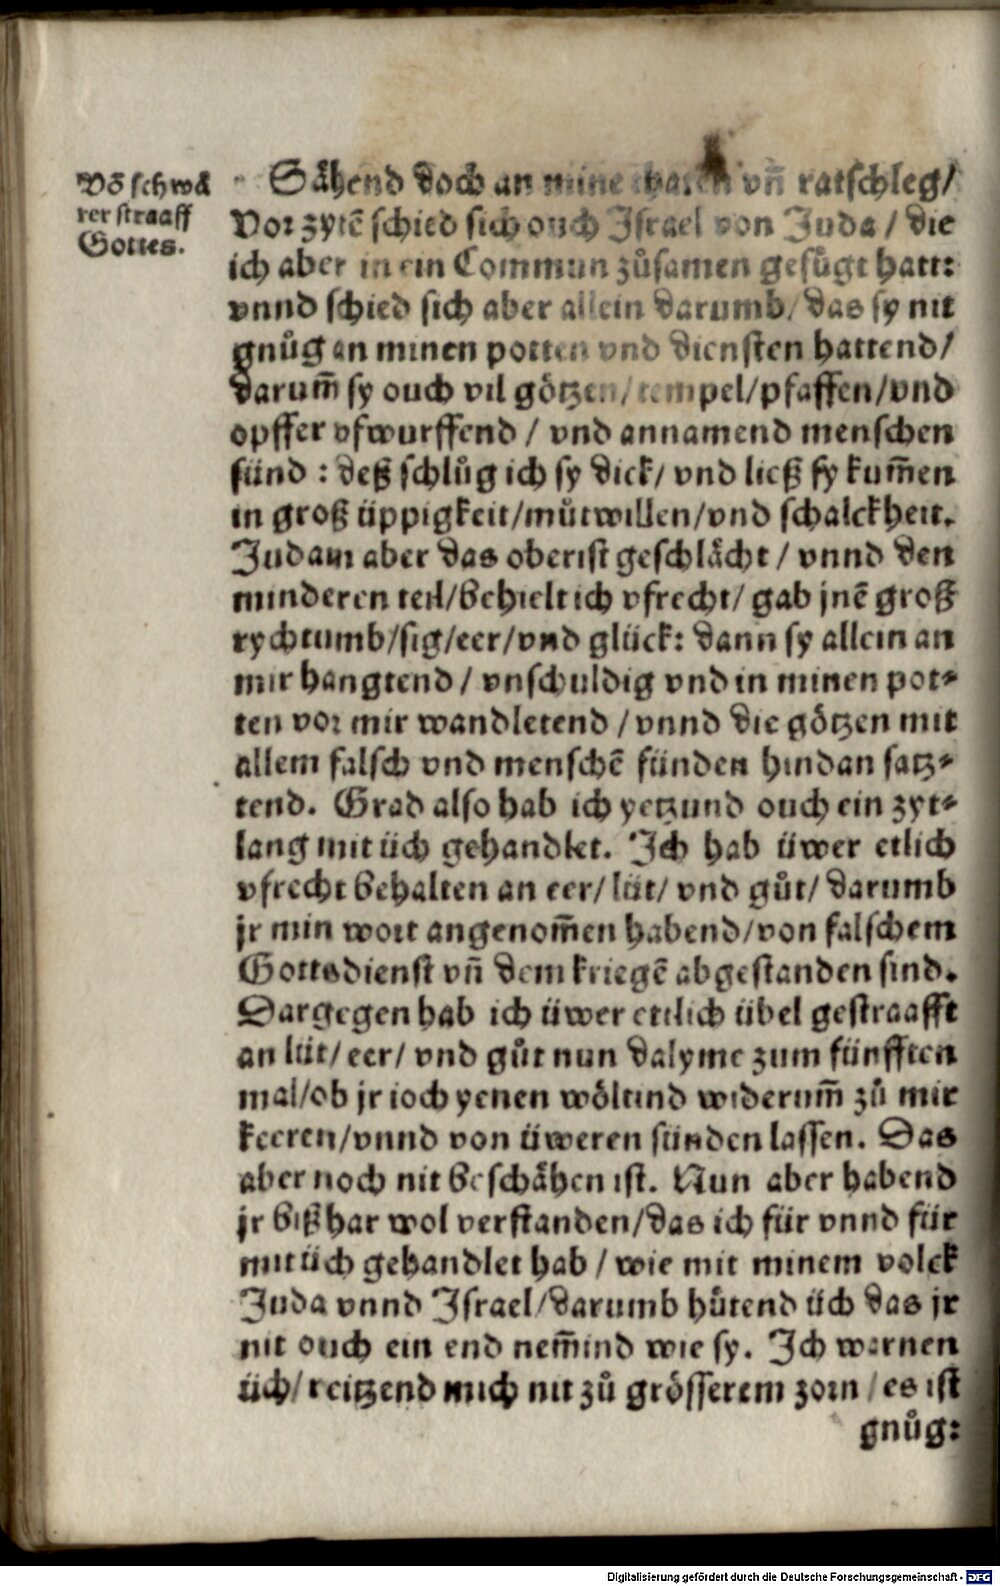 Võ schwå
rer straaff
Gottes.
Såhend doch an mine thaten vñ ratschleg/
Vor zytẽ schied sich ouch Israel von Juda / die
ich aber in ein Commun zůsamen gefůgt hatt:
vnnd schied sich aber allein darumb/ das sy nit
gnůg an minen potten vnd diensten hattend/
darum̃ sy ouch vil götzen/ tempel/pfaffen/vnd
opffer vfwurffend / vnd annamend menschen
fünd : deß schlůg ich sy dick/ vnd ließ sy kum̃en
in groß üppigkeit/můtwillen/vnd schalckheit.
Judam aber das oberist geschlächt / vnnd den
minderen teil/behielt ich vfrecht/ gab jnẽ groß
rychtumb/sig/eer/vnd glück: dann sy allein an
mir hangtend / vnschuldig vnd in minen pot-
ten vor mir wandletend / vnnd die götzen mit
allem falsch vnd menschẽ fünden hindan satz-
tend. Grad also hab ich yetzund ouch ein zyt-
lang mit üch gehandlet. Ich hab üwer etlich
vfrecht behalten an eer/ lüt/ vnd gůt/ darumb
jr min wort angenom̃en habend/von falschem
Gottsdienst vñ dem kriegẽ abgestanden sind.
Dargegen hab ich üwer ettlich übel gestraafft
an lüt/ eer/ vnd gůt nun dalyme zum fünfften
mal/ob jr ioch yenen wöltind widerum̃ zů mir
keeren/vnnd von üweren sünden lassen. Das
aber noch nit beschåhen ist. Nun aber habend
jr biß har wol verstanden/das ich für vnnd für
mit üch gehandlet hab / wie mit minem volck
Juda vnnd Israel/darumb hůtend üch das jr
nit ouch ein end nem̃ind wie sy. Ich warnen
üch/ reitzend mich nit zů grösserem zorn / es ist
gnůg:
Digitalisierung gefördert durch die Deutsche Forschungsgemeinschaft - DFG